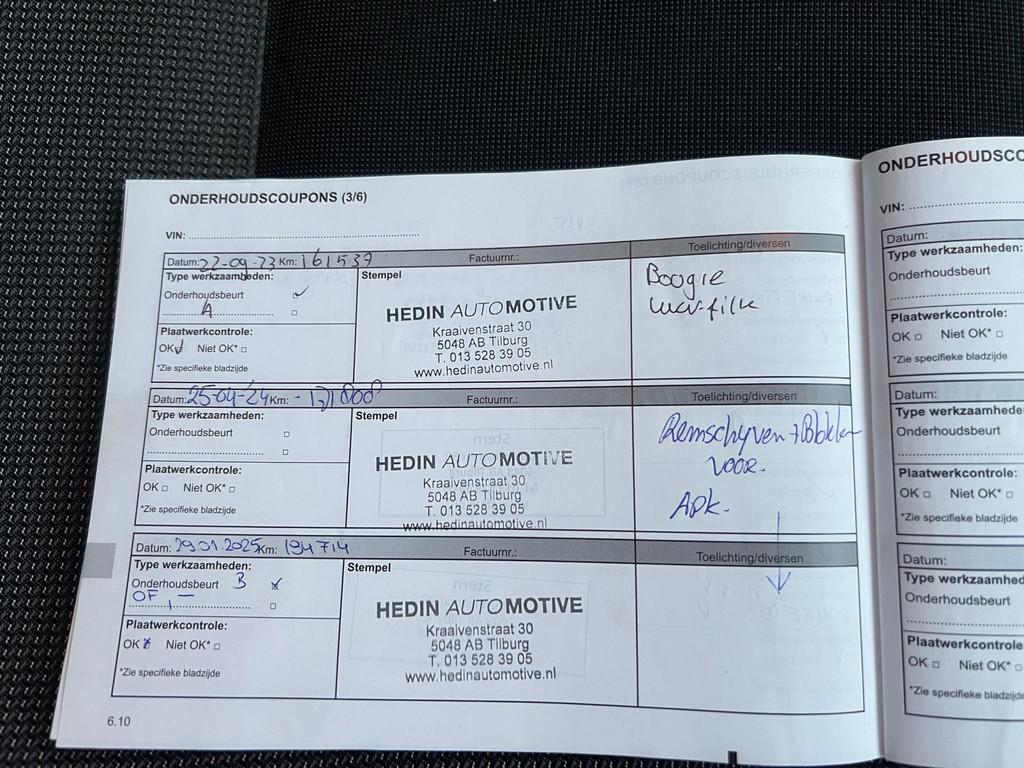 ONDERHOUDSCOUPONS (3/6)
VIN:
Datum: 22-09-23 Km: 161537 Factuurnr.: Toelichting/diversen
Type werkzaamheden: Stempel
Onderhoudsbeurt
A
Plaatwerkcontrole:
OK Niet OK*
*Zie specifieke bladzijde
HEDIN AUTOMOTIVE
Kraaivenstraat 30
5048 AB Tilburg
T. 013 528 39 05
www.hedinautomotive.nl
Boogie
Datum: 25-04-'24 Km: Factuurnr.: Toelichting/diversen
Type werkzaamheden: Stempel
Onderhoudsbeurt
Plaatwerkcontrole:
OK Niet OK*
*Zie specifieke bladzijde
HEDIN AUTOMOTIVE
Kraaivenstraat 30
5048 AB Tilburg
T. 013 528 39 05
www.hedinautomotive.nl
Remschyven +
VOOR.
APK.
Datum: 29.01.2025 Km: 194714 Factuurnr.: Toelichting/diversen
Type werkzaamheden: Stempel
Onderhoudsbeurt B
OF
Plaatwerkcontrole:
OK Niet OK*
*Zie specifieke bladzijde
HEDIN AUTOMOTIVE
Kraaivenstraat 30
5048 AB Tilburg
T. 013 528 39 05
www.hedinautomotive.nl
6.10
VIN:
Datum:
Type werkzaamheden:
Onderhoudsbeurt
Plaatwerkcontrole:
OK Niet OK*
*Zie specifieke bladzijde
Datum:
Type
Onderhoudsbeurt
Plaatwerkcontrole:
OK Niet OK*
*Zie specifieke bladzijde
Datum:
Type
Onderhoudsbeurt
Plaatwerkcontrole
OK Niet OK*
*Zie specifieke